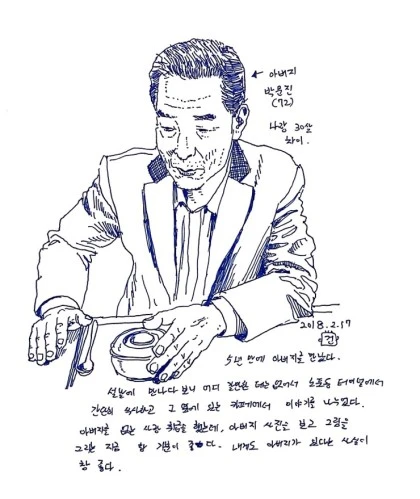 ← 아버지
박윤진
(72)
나랑 30살
차이.
2018. 2. 17
건
5년 만에 아버지를 만났다.
설날에 만나다 보니 어디 문연 데는 없어서 노포동 터미널에서
간단히 식사하고 그 옆에 있는 카페에서 이야기를 나누었다.
아버지를 없는 사람 취급을 했는데, 아버지 사진을 보고 그림을
그린 지금 참 기분이 좋다. 내게도 아버지가 있다는 사실이
참 좋다.